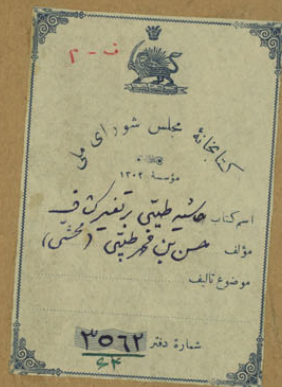 ف - م
کتابخانهٔ مجلس شورای ملی
مؤسسهٔ ۱۳۰۲
اسم کتاب حاشیه طیبی بر تفسیر کشاف
مؤلف حسن بن محمد طیبی (محشی)
موضوع تالیف
شمارهٔ دفتر ۳۵۶۲
۶۴